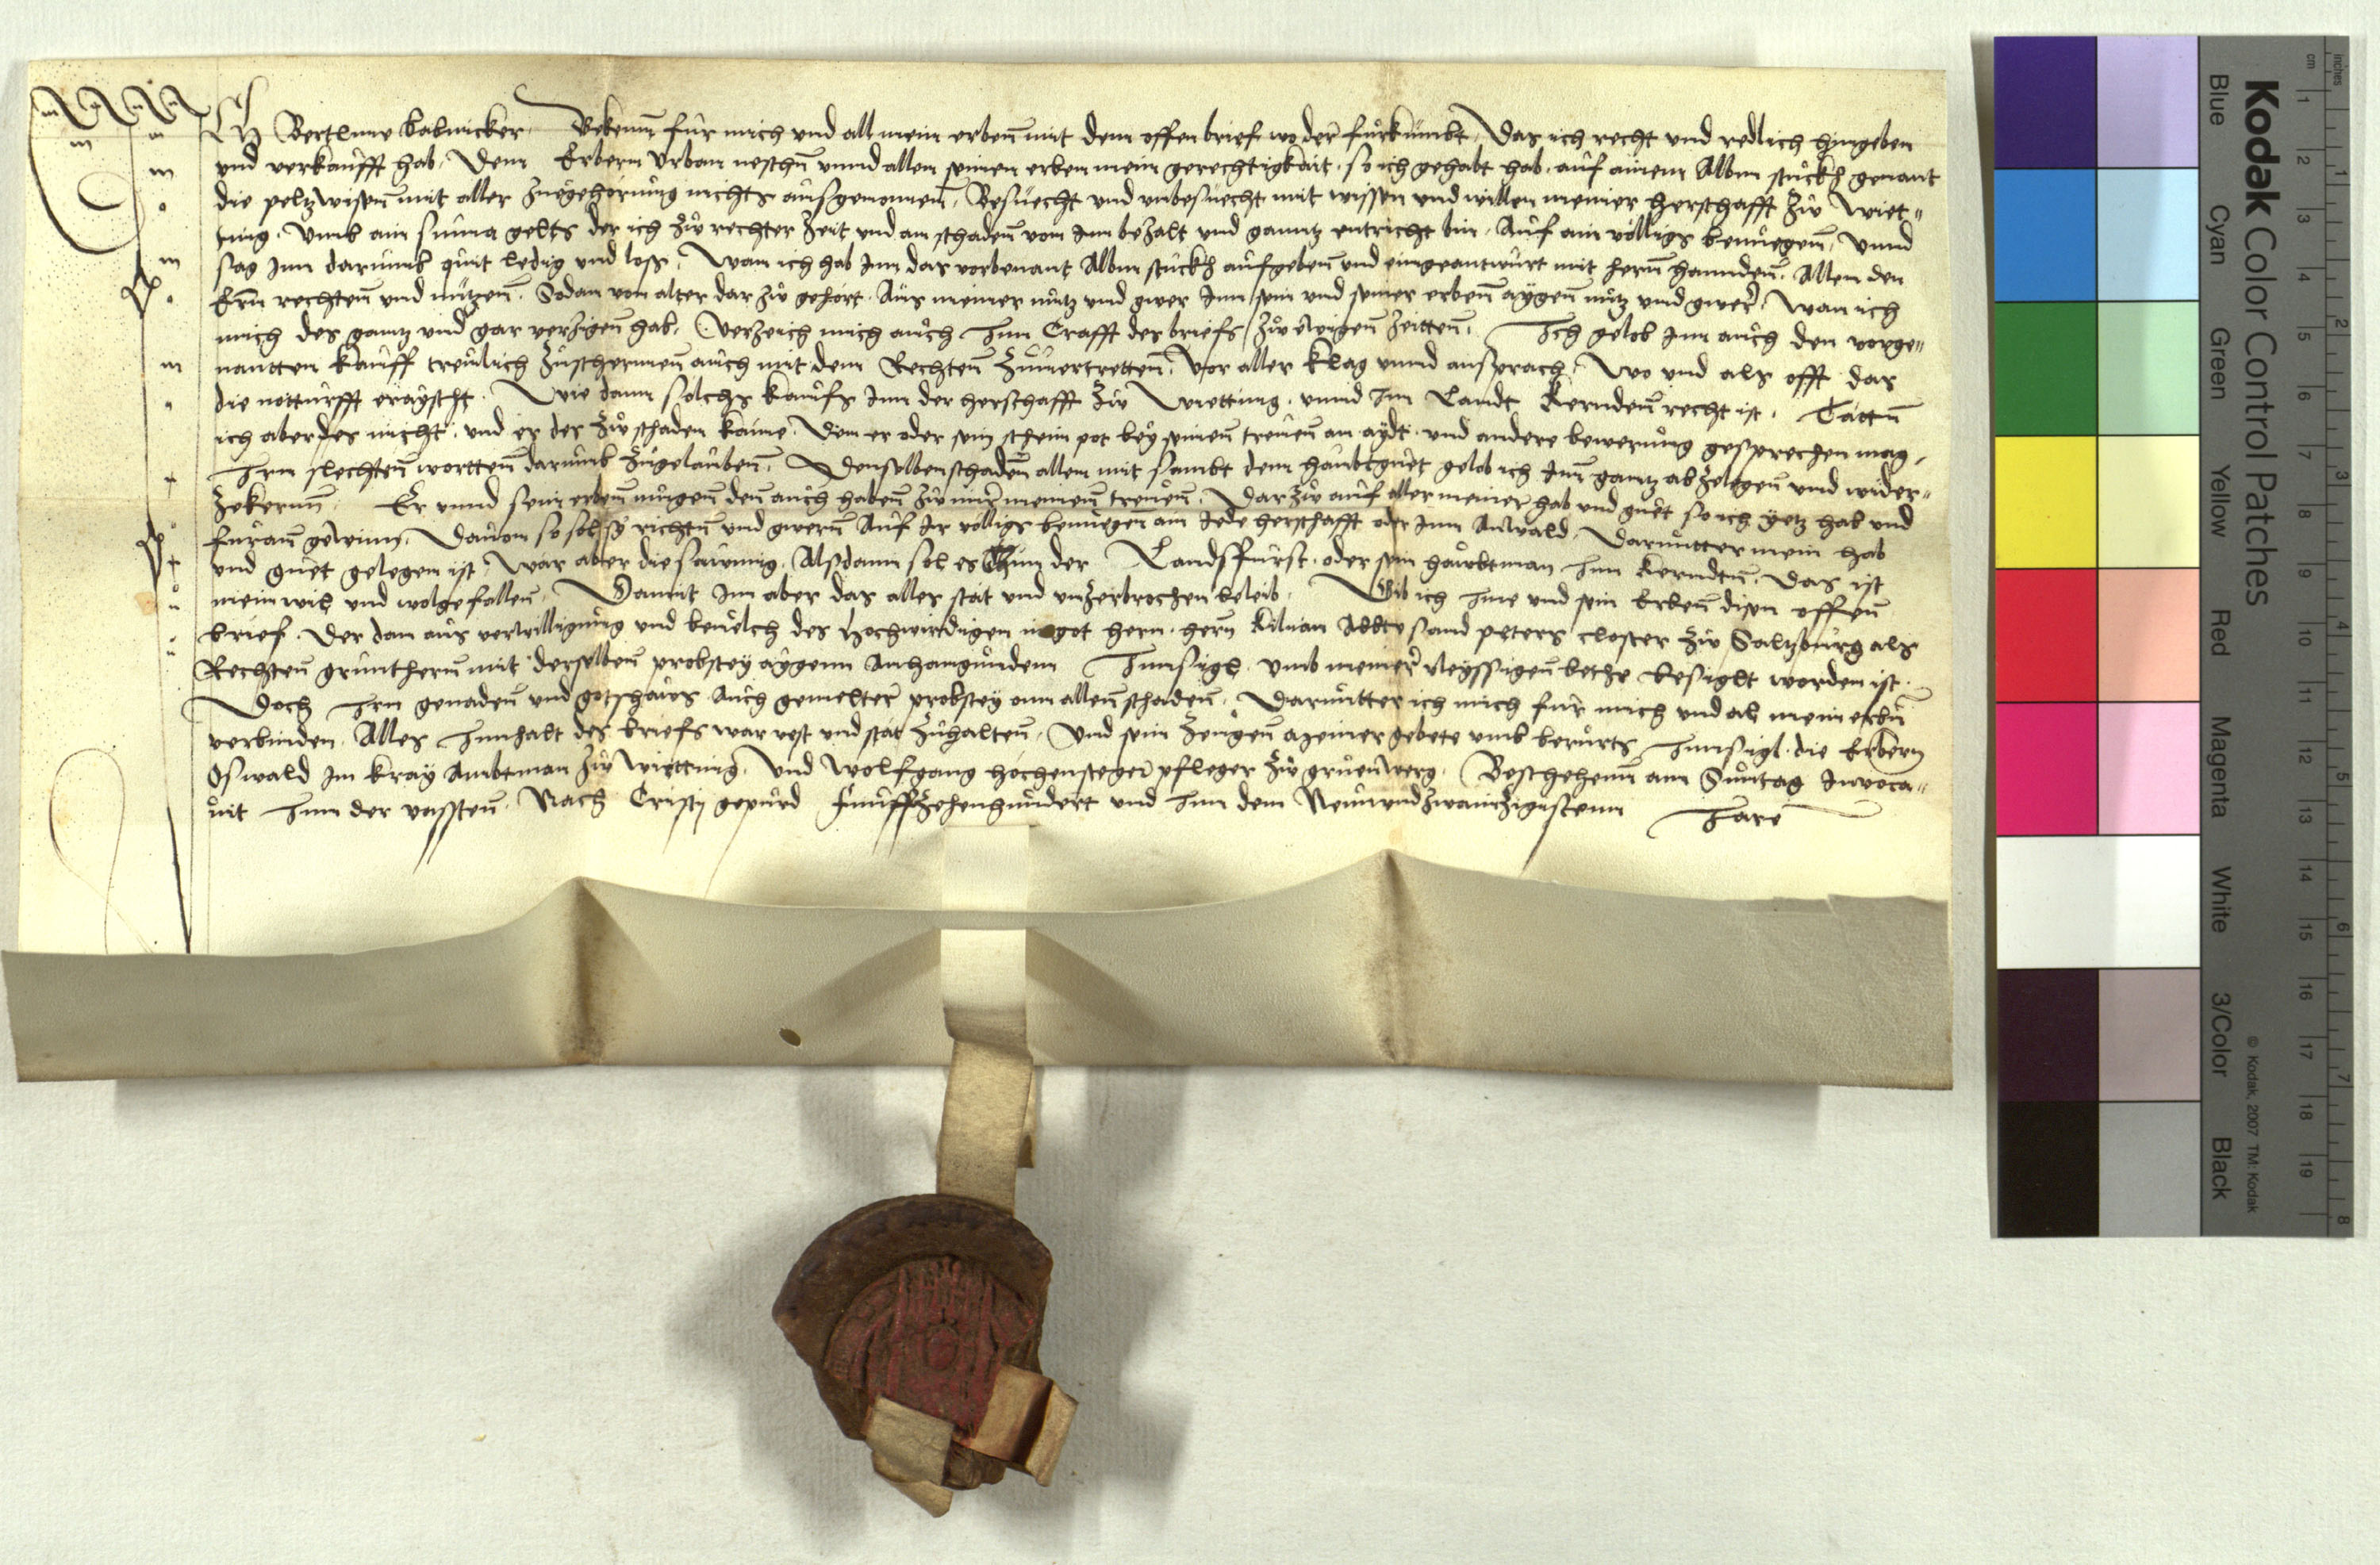 Ich Bertlme kabnicker. Bekenn für mich und all mein erben mit dem offen brief wo der fürkumbt, Das ich recht und redlich hingeben
und verkaufft hab. Dem Erbern Urban neschn unnd allen seinen erben mein gerechtigkait. so ich gehabt hab. auf ainem Albm stuckh genant
die peltzwisen mit aller Zuegehörung nichts ausgenomen, Besuecht und unbesuecht mit wissen und willen meiner Herschafft Zu Wiet-
ting. Umb ain suma gelts der ich Zu rechter Zeit und an schaden von Inn beZalt und ganntz entricht bin. Auf ain völligs benuegen, Unnd
sag Inn darumb quit ledig und loss. Wan ich hab Inn das vorbenant Albm stuckh aufgeben und eingeantwurt mit hern hannden. Allen den
Ern rechten und nützen. Sodan von alter dar Zu gehört. Aus meiner nutz und gwer Inn sein und seiner erben aygen nutz und gwer. Wan ich
mich des gantz und gar verZigen hab. VerZeich mich auch Inn Crafft des briefs Zu ewigen Zeitten. Ich gelob Inn auch den vorge-
nantten kauff treulich Zuschermen auch mit dem Rechten Zuuertretten. Vor aller klag unnd ansprach. Wo und als offt das
die notturfft erayscht. Wie dann solchs kaufs Inn der herschafft Zu Wietting. unnd Im Landt Kernden recht ist. Tättn
ich aber des nicht. und er des Zu schaden käme. Den er oder sein schein pot bey seinen treuen an aydt. und andere bewerung gesprechen mag.
Irn slechten wortten darumb Zugelauben. Denselben schaden allen mit sambt dem haubtguet gelob ich Inn gantz abZelegen und wider-
Zekern. Er unnd sein erben mugen den auch haben Zu mir meinen treuen. Dar Zu auf aller meiner hab und guet so ich yetz hab und
füran gewinn. Dauon so sol sy richtn und gwern Auf Ir völligs benuegen am Iede herschafft oder Inn Anwald. Darunter mein hab
und guet gelegen ist. Wär aber die säumig. Alsdann sol es Thun der Landsfürst. oder sein haubtman Inn Kerndtn. Das ist
mein wil und wolgefallen. Damit Im aber das alles stät und unZerbrochen beleib. Gib ich Ime und sein Erben disen offen
brief. Der dan aus verwilligung und beuelch des Hochwirdigen in got hern. hern Kilian Abbte sand peters closter Zu Saltzburg als
Rechten grunthern mit derselben probstey aygenn Anhangundem Innsigl. umb meiner vleyssigen bethe besiglt worden ist.
Doch Irn genaden und gotshaus Auch gemelter probstey onn allen schaden. Darunter ich mich für mich und al mein erbn
verbinden. Alles Innhalt des briefs war vest und stät Zuhalten. Und sein Zeugen aZeiner gebete umb berurts Innsigl. die Erbern
Oswald Im kray Ambtman Zu Wietting. Und Wolfgang hochensteger pfleger Zu gruenwerg. Beschehenn am Suntag Inuoca-
uit Inn der vassten. Nach Cristy gepurd Funffzehenhundert und Inn dem NeunundZwainZigistenn Jare
Kodak Color Control Patches
Blue Cyan Green Yellow Red Magenta White 3/Color Black
© Kodak, 2007 TM: Kodak
inches 1 2 3 4 5 6 7 8
cm 1 2 3 4 5 6 7 8 9 10 11 12 13 14 15 16 17 18 19